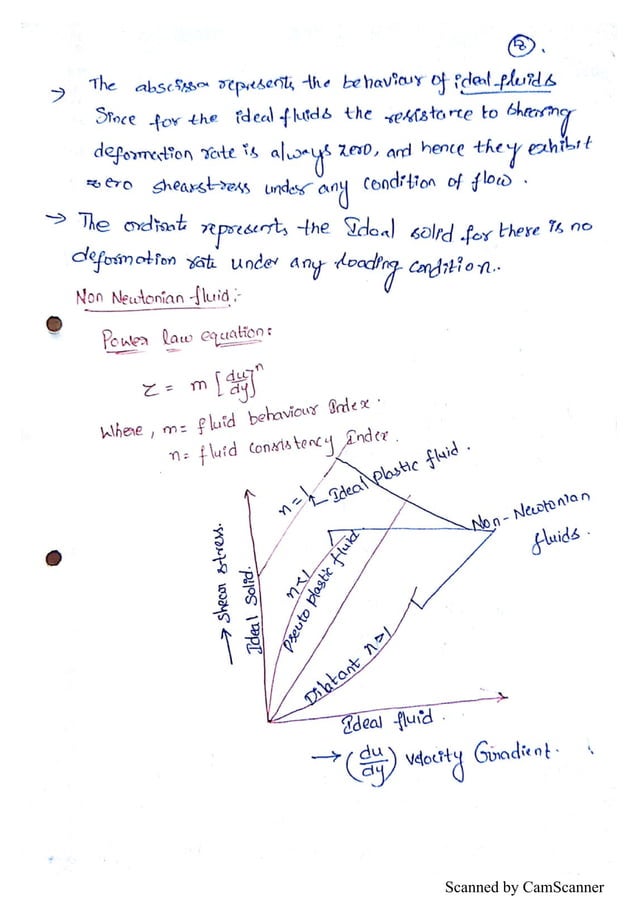 12.
→ The abscissa represents the behaviour of ideal fluids
Since for the ideal fluids the resistance to shearing
deformation rate is always zero, and hence they exhibit
zero shearstress under any condition of flow.
→ The ordinate represents the Ideal solid for there is no
deformation rate under any loading condition..
Non Newtonian fluid:-
Power law equation:
τ = m [du/dy]ⁿ
Where, m = fluid behaviour Index.
n = fluid consistency Index.
n=1
Ideal plastic fluid.
Non-Newtonian
fluids.
→ Shear stress.
Ideal Solid.
n<1
Pseuto plastic fluid
Dilatant n>1
Ideal fluid.
→ (du/dy) Velocity Gradient.
Scanned by CamScanner